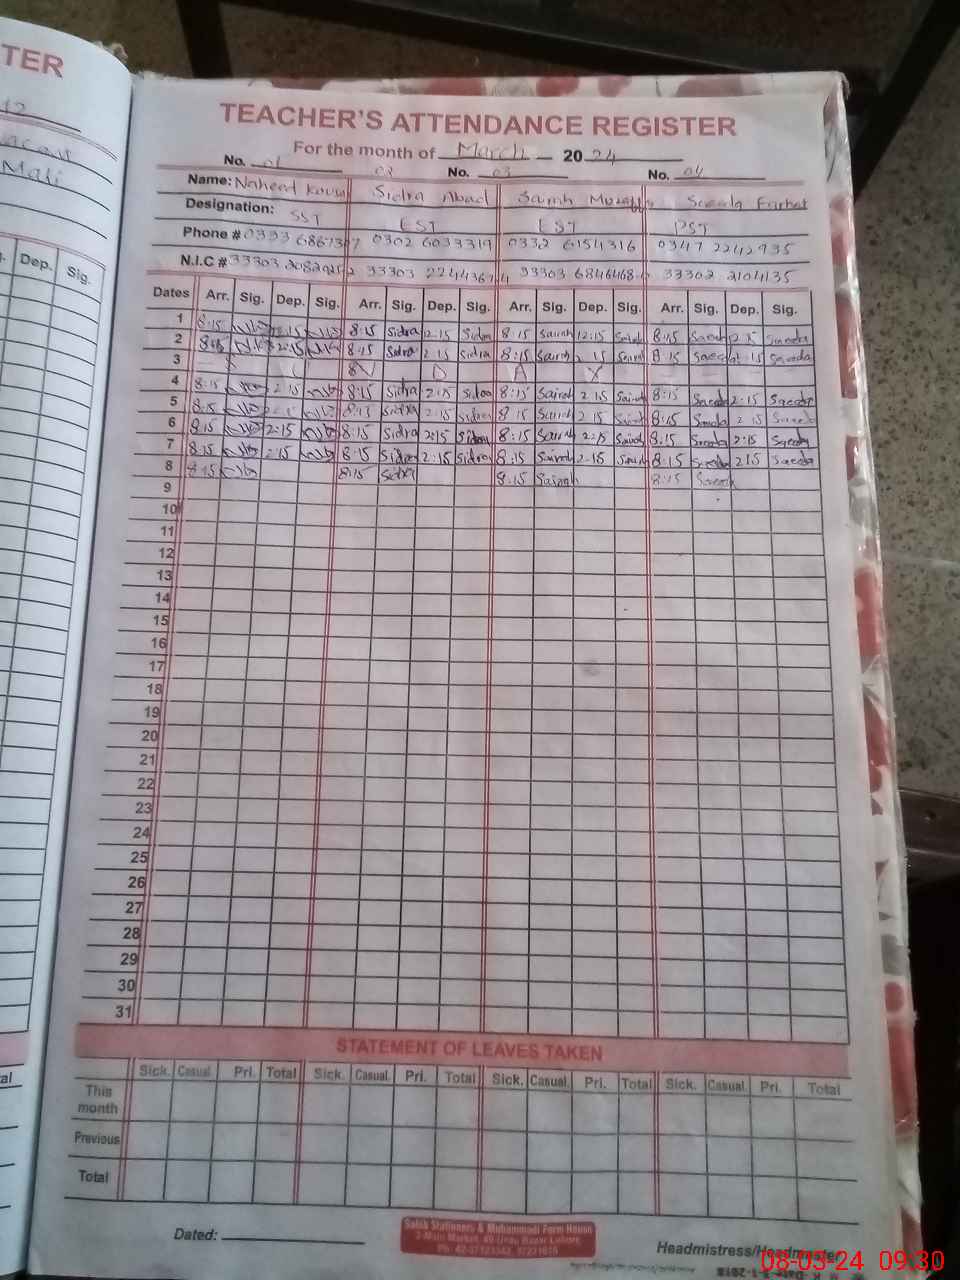 TER
12
Mali
Dep. Sig.
TEACHER'S ATTENDANCE REGISTER
For the month of March 2024
No. 01 02 No. 03 No. 04
Name: Naheed Sidra Abad Sarah Saeeda Farhat
Designation: SST EST EST PST
Phone # 0302 6033319 0332 6154316 0347 2242935
N.I.C # 33303 33303 33303 33302 2104135
Dates Arr. Sig. Dep. Sig. Arr. Sig. Dep. Sig. Arr. Sig. Dep. Sig. Arr. Sig. Dep. Sig.
1 8:15 8:15 Sidra 2:15 Sidra 8:15 Sairah 12:15 Sairah 8:15 Saeeda
2 8:15 2:15 8:15 Sidra 2:15 Sidra 8:15 Sairah 2:15 8:15 Saeeda
3 S U N D A Y
4 8:15 2:15 8:15 Sidra 2:15 Sidra 8:15 Sairah 2:15 Sairah 8:15 Saeeda 2:15 Saeeda
5 8:15 8:15 Sidra 2:15 Sidra 8:15 Sairah 2:15 Sairah 8:15 Saeeda 2:15 Saeeda
6 8:15 2:15 8:15 Sidra 2:15 Sidra 8:15 Sairah 2:15 Sairah 8:15 Saeeda 2:15 Saeeda
7 8:15 2:15 8:15 Sidra 2:15 Sidra 8:15 Sairah 2:15 Sairah 8:15 Saeeda 2:15 Saeeda
8 8:15 8:15 Sidra 8:15 Sairah 8:15 Saeeda
9
10
11
12
13
14
15
16
17
18
19
20
21
22
23
24
25
26
27
28
29
30
31
STATEMENT OF LEAVES TAKEN
Sick. Casual. Pri. Total Sick. Casual. Pri. Total Sick. Casual. Pri. Total Sick. Casual. Pri. Total
This month
Previous
Total
Dated:
Salok Stationers & Muhammadi Form House
2-Main Market, 40-Urdu Bazar Lahore.
Headmistress/Headmaster
08-03-24 09:30